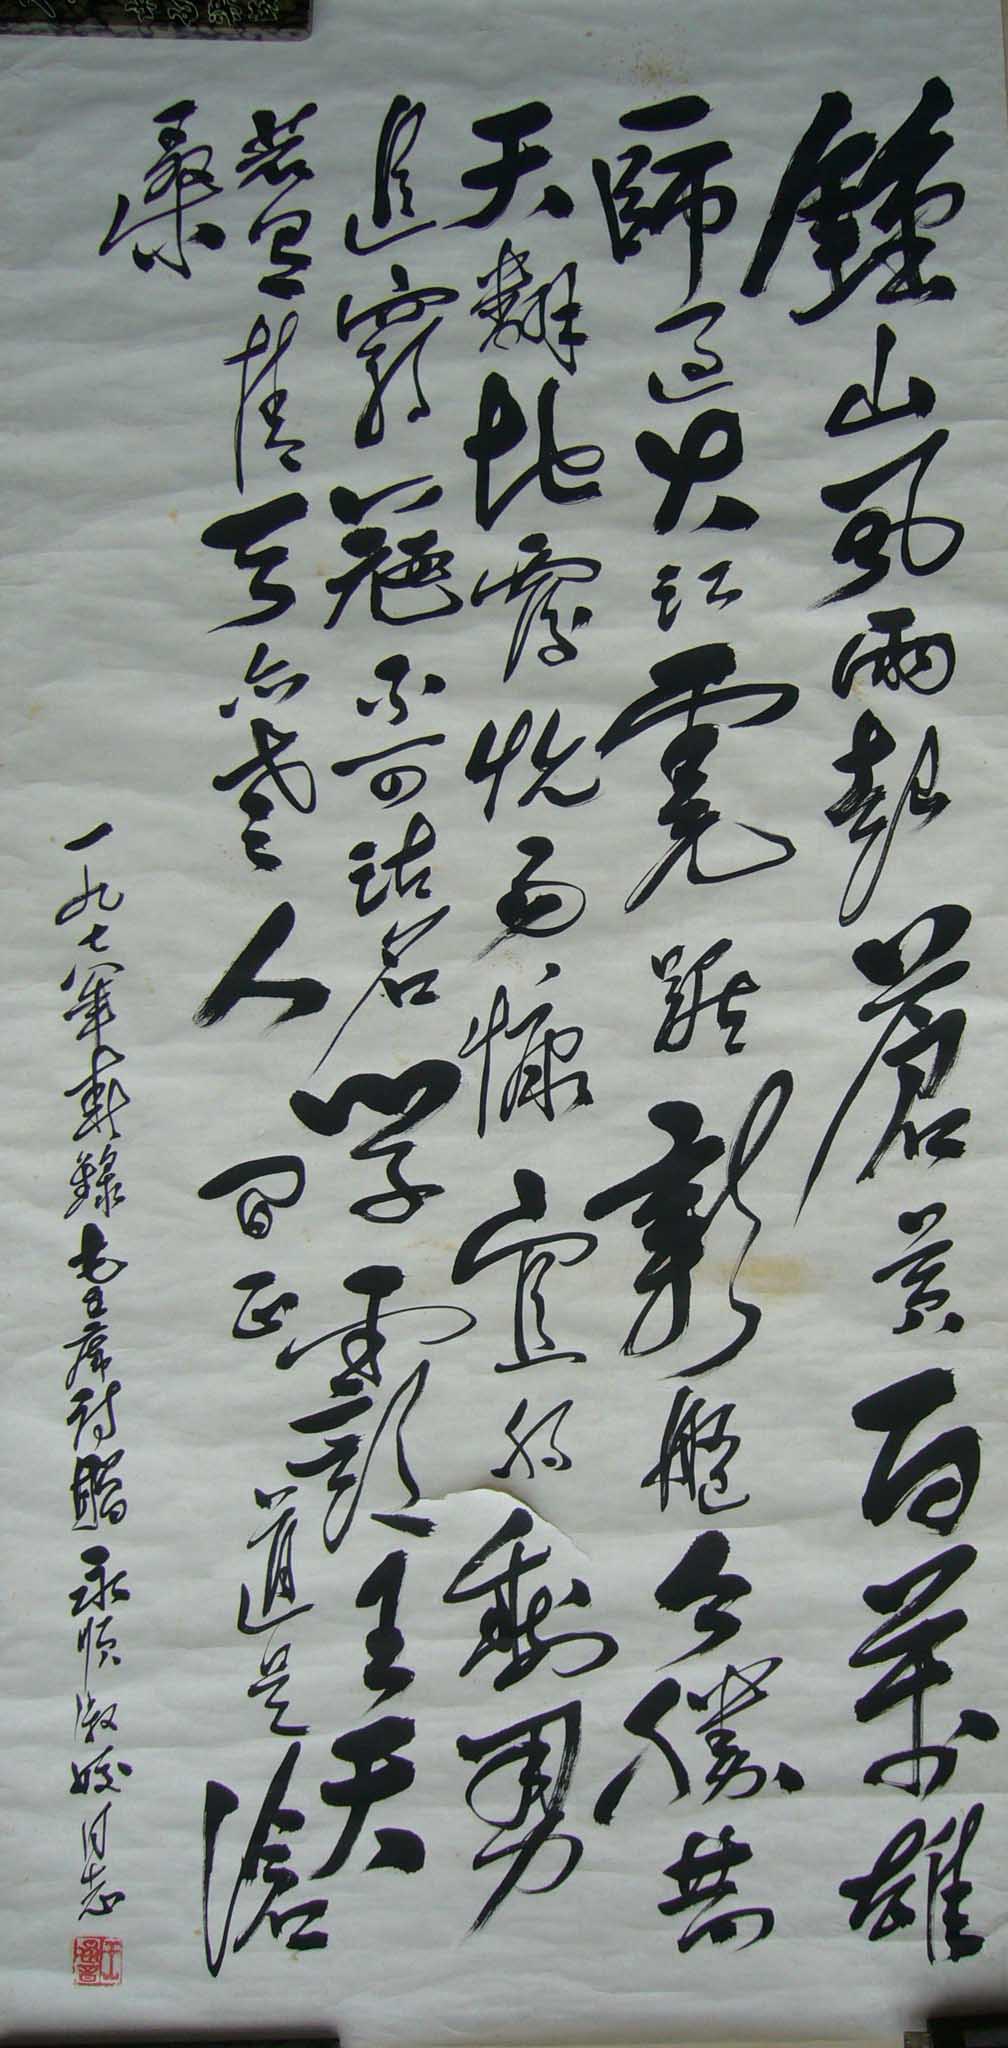 鍾山風雨起蒼黃百萬雄
師過大江虎踞龍盤今勝昔
天翻地覆慨而慷宜將剩勇
追窮寇不可沽名學霸王天
若有情天亦老人間正道是滄
桑
一九七八年春錄毛主席詩贈永順淑姣同志